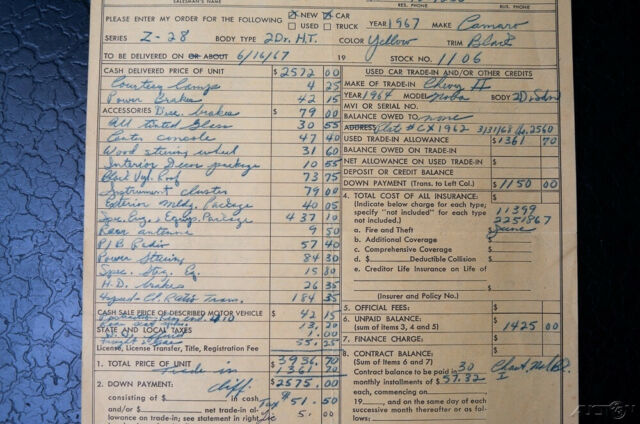 SALESMAN'S NAME RES. PHONE BUS. PHONE
PLEASE ENTER MY ORDER FOR THE FOLLOWING X NEW X CAR YEAR 1967 MAKE Camaro
USED TRUCK
SERIES Z-28 BODY TYPE 2Dr. H.T. COLOR Yellow TRIM Black
TO BE DELIVERED ON OR ABOUT 6/16/67 19 STOCK NO. 1106
CASH DELIVERED PRICE OF UNIT $ 2572 00
Courtesy Lamps 4 25
Power Brakes 42 15
ACCESSORIES Disc. brakes $ 79 00
All tinted Glass 30 55
Center console 47 40
Wood steering wheel 31 60
Interior Decor package 10 55
Black Vyl. Roof 73 75
Instrument cluster 79 00
Exterior Mldg. Package 40 05
Spec. Eng. & Equip. Package 437 10
Rear antenna 9 50
P/B Radio 57 40
Power Steering 84 30
Spec. Strg. Eq. 15 80
H.D. brakes 26 35
4 speed Cl. Ratio Trans. 184 35
CASH SALE PRICE OF DESCRIBED MOTOR VEHICLE $ 42 15
Rear End 410
13.20
STATE AND LOCAL TAXES 1.00
55.25
License, License Transfer, Title, Registration Fee
1. TOTAL PRICE OF UNIT $ 3936.70
Trade in 1361 70
2. DOWN PAYMENT: $ 2575.00
consisting of $ in cash Tax $ 51.50
and/or $ net trade-in al-
lowance on trade-in; see statement in right Lic 5.00
USED CAR TRADE-IN AND/OR OTHER CREDITS
MAKE OF TRADE-IN Chevy II
YEAR 1964 MODEL Nova BODY 2D. Sdn
MVI OR SERIAL NO.
BALANCE OWED TO none
ADDRESS Plat # CX 1962 3/31/68 2560
USED TRADE-IN ALLOWANCE $ 1361 70
BALANCE OWED ON TRADE-IN
NET ALLOWANCE ON USED TRADE-IN $
DEPOSIT OR CREDIT BALANCE
DOWN PAYMENT (Trans. to Left Col.) $ 1150 00
4. TOTAL COST OF ALL INSURANCE:
(Indicate below charge for each type;
specify "not included" for each type
not included.)
11399
2251867
a. Fire and Theft $ June
b. Additional Coverage $
c. Comprehensive Coverage $
d. $ Deductible Collision $
e. Creditor Life Insurance on Life of
$
(Insurer and Policy No.)
5. OFFICIAL FEES: $
6. UNPAID BALANCE:
(sum of items 3, 4 and 5) $ 1425 00
7. FINANCE CHARGE: $
8. CONTRACT BALANCE:
(Sum of Items 6 and 7) $
Contract balance to be paid in 30
monthly installments of $ 57.32
each, commencing on
19 , and on the same day of each
successive month thereafter or as fol-
lows: